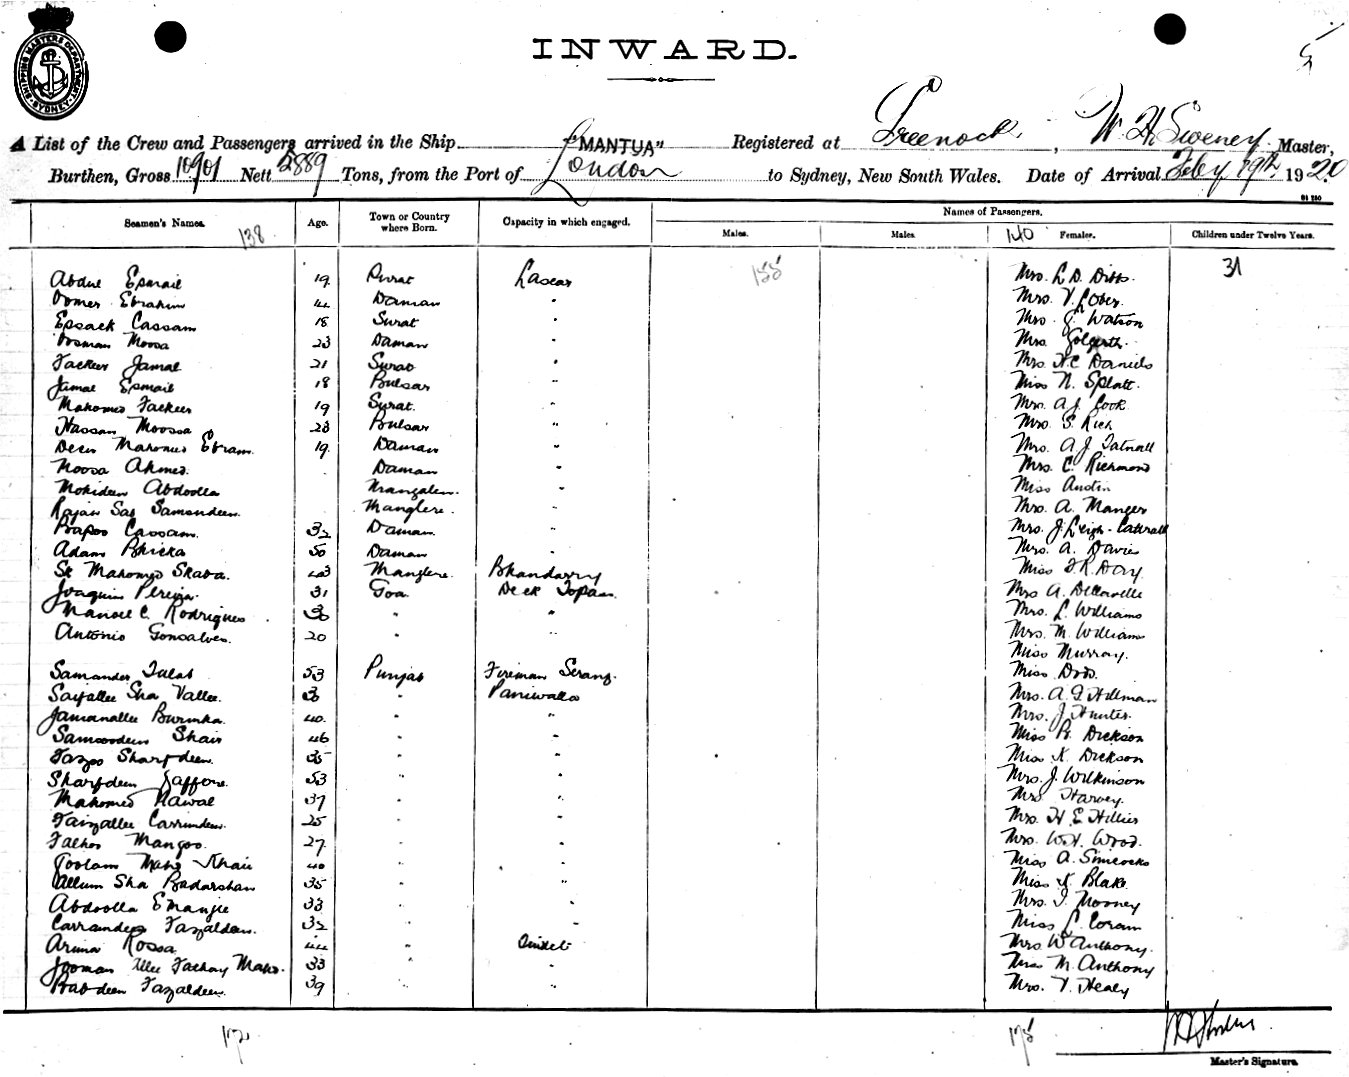 SHIPPING MASTERS DEPARTMENT SYDNEY
INWARD.
5
A List of the Crew and Passengers arrived in the Ship "MANTUA" Registered at Greenock, W. H. Sweney Master,
Burthen, Gross 10901 Nett 5889 Tons, from the Port of London to Sydney, New South Wales. Date of Arrival Feby 19th 1920.
Seamen's Names. Age. Town or Country where Born. Capacity in which engaged. Names of Passengers.
Males. Males. Females. Children under Twelve Years.
138 140
155 31
Abdul Esmail 19 Surat Lascar Mrs. L. D. Dibbs.
Oomer Ebrahim 44 Daman " Mrs. V.
Essack Cassam 18 Surat " Mrs. G. Watson
Oosman Moosa 23 Daman " Mrs.
Fackeer Jamal 21 Surat " Mrs. H. C. Daniels
Jamal Esmail 18 Bulsar " Miss N. Splatt.
Mahomed Fackeer 19 Surat. " Mrs. A. J. Cook.
Hassan Moossa 23 Bulsar " Mrs. S. Rich
Deen Mahomed Ebram. 19 Daman " Mrs. A. J. Tatnall
Moosa Ahmed. Daman " Mrs. C. Richmond
Mohideen Abdoolla Mangalore. " Miss Austin
Samsudeen. Manglere. " Mrs. A. Manger
Bapoo Cassam. 32 Daman. " Mrs. J. Leigh-Cattrall
Adam Bhicka 50 Daman " Mrs. A. Davies
Sk Mahomed Skaba. 43 Manglere. Bhandarry Miss F. R. Day.
Joaquim Pereira. 31 Goa Deck Topass. Mrs A.
Manoel C. Rodrigues 36 " " Mrs. L. Williams
Antonio Gonsalves. 20 " " Mrs. M. Williams
Miss Murray.
Samander Talab 53 Punjab Fireman Serang. Miss Dods.
Saifallee Sha Vallee. 36 " Paniwalla Mrs. A. F. Hillman
Jamanallee Burmka. 40. " " Mrs. J. Hunter.
Samsoodeen Shair 46 " " Miss B. Dickson
Fazoo Sharfdeen. 35 " " Miss K. Dickson
Sharfdeen Gaffore. 53 " " Mrs. J. Wilkinson
Mahomed Nawal 37 " " Mrs Harvey.
Faizallee Carrimdeen. 25 " " Mrs. H. E. Hillier
Mangoo. 27 " " Mrs. W. H. Wood.
Goolam Maho Khair 40 " " Miss A. Simcocks
Allum Sha Badarshan 35 " " Miss K. Blake.
Abdoolla Emamjee 33 " " Mrs. I. Mooney
Carramdeen Fazaldeen. 32 " " Miss L. Coram
Rossa 44 " Mrs W. Anthony.
Jooman Allee Maho. 33 " " Miss M. Anthony
Fazaldeen. 39 " " Mrs. V. Healy
172 175
Master's Signature.